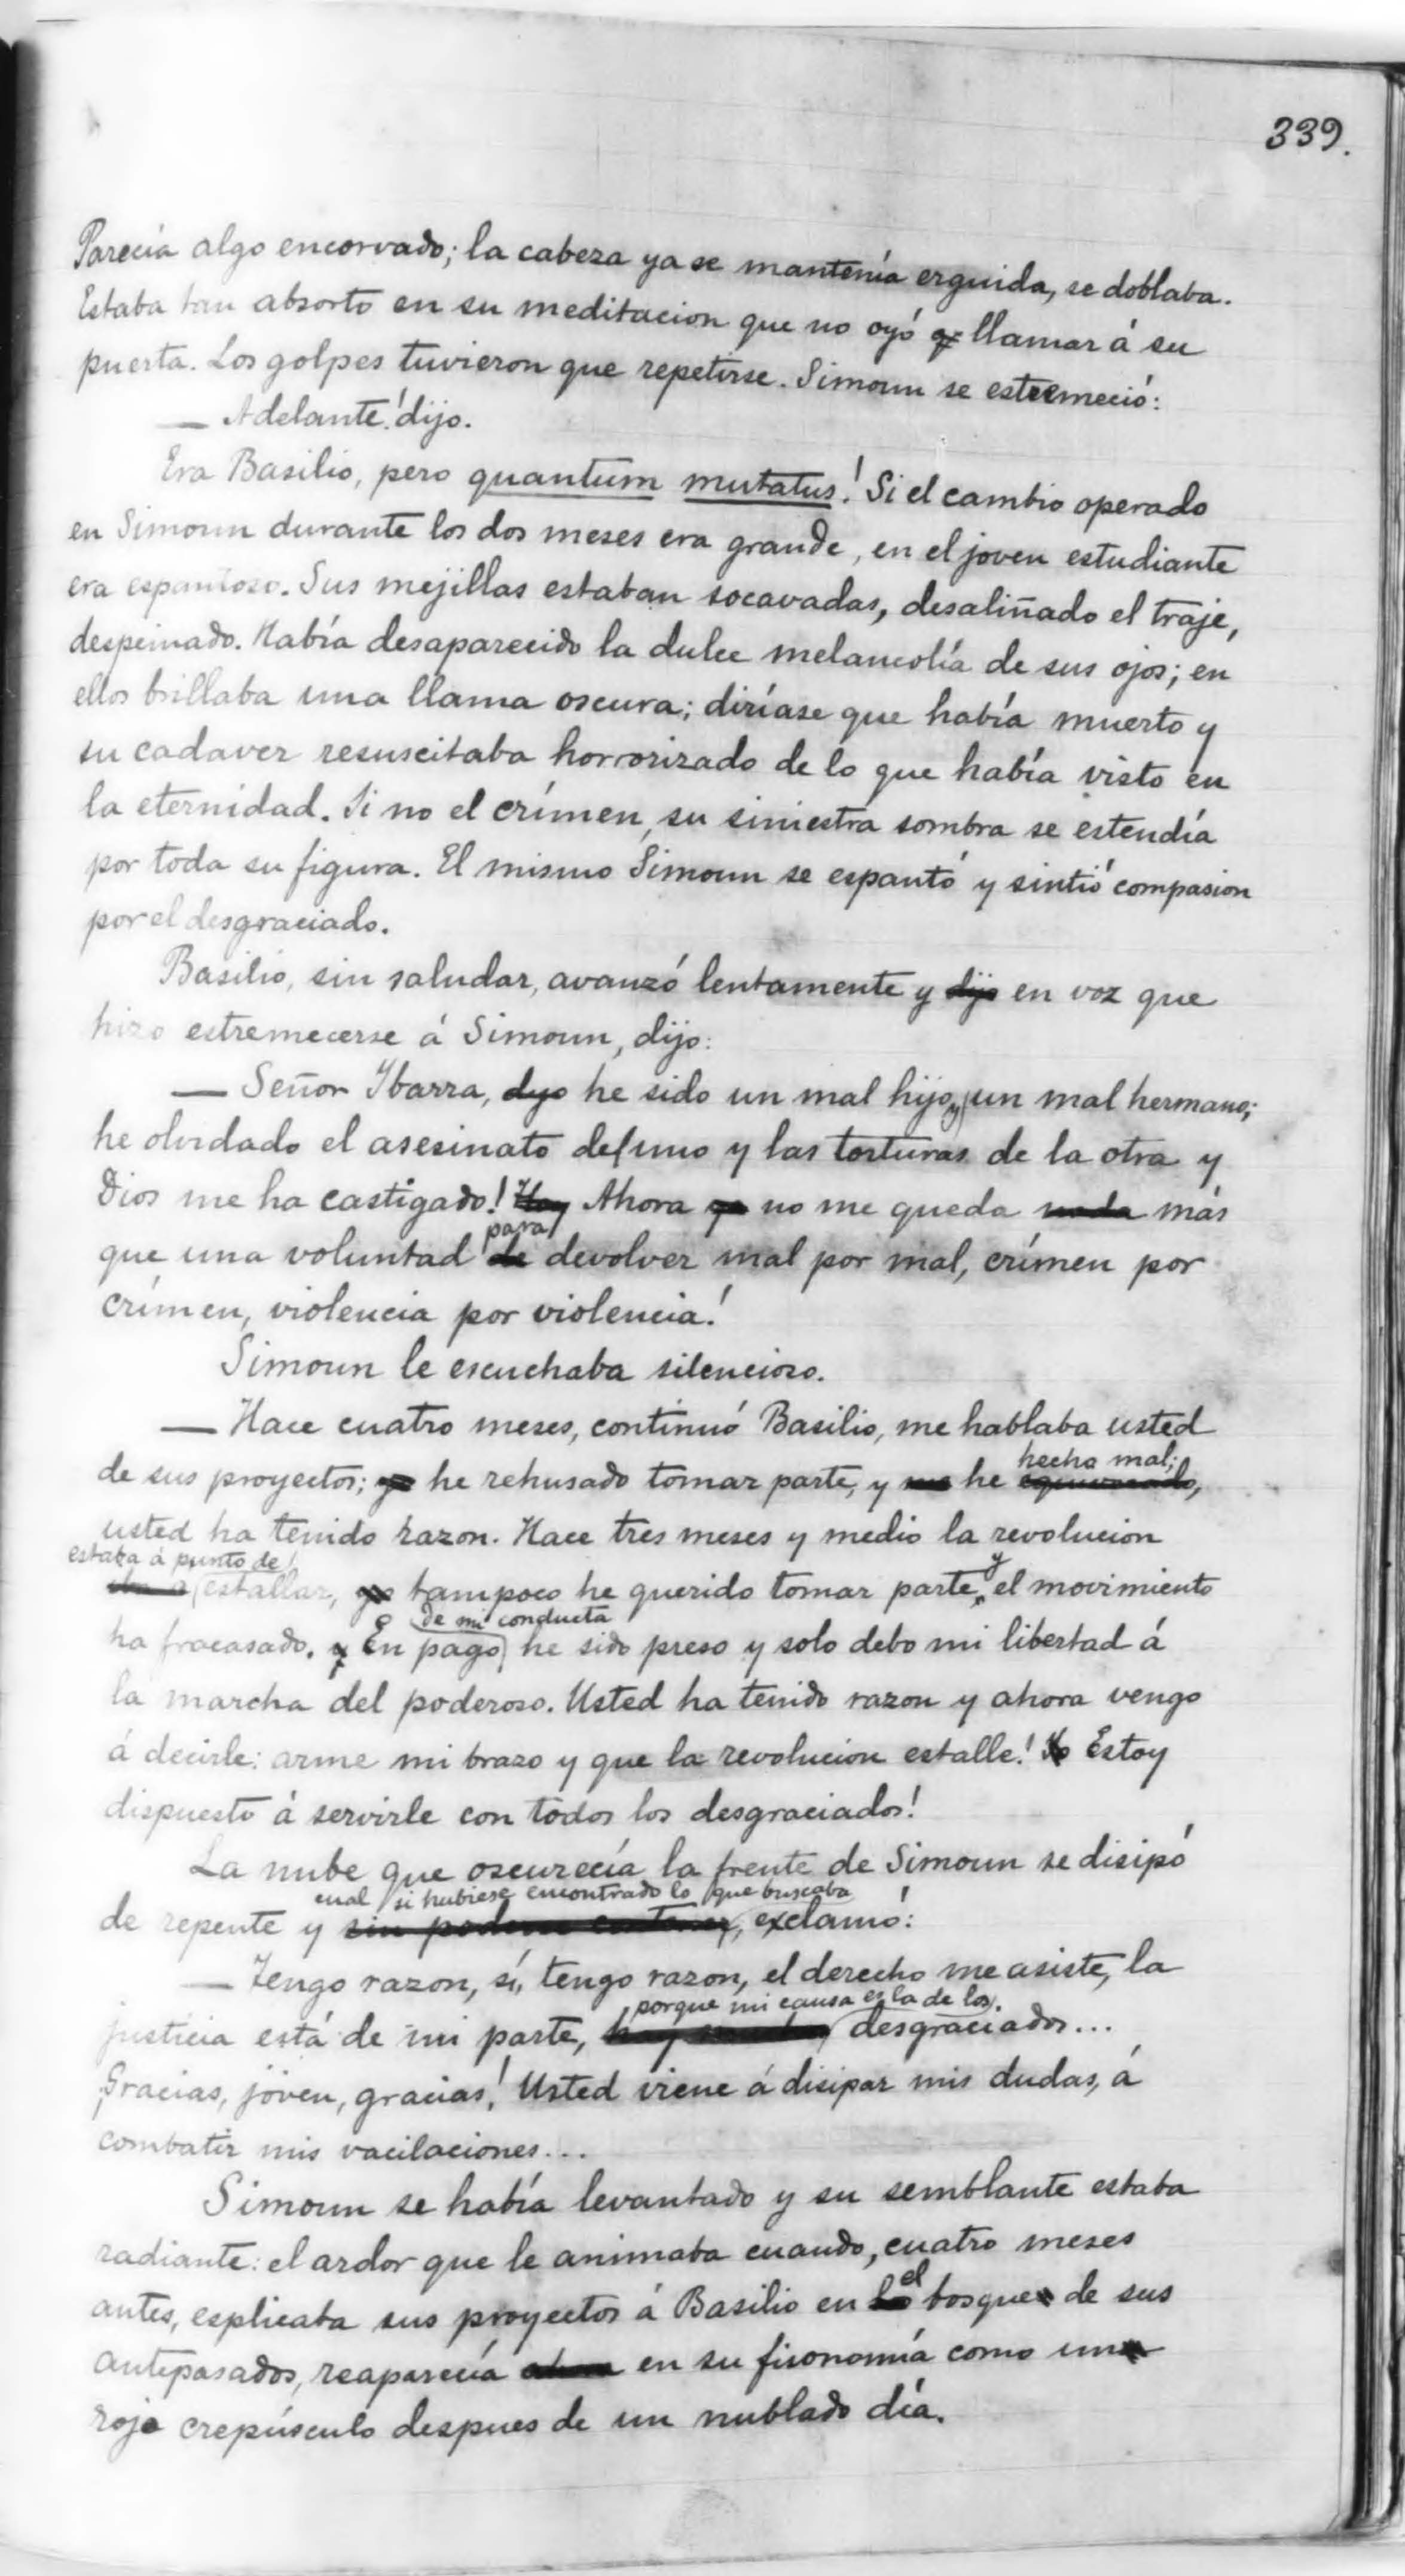 339.
Parecía algo encorvado; la cabeza ya se mantenía erguida, se doblaba.
Estaba tan absorto en su meditacion que no oyó llamar á su
puerta. Los golpes tuvieron que repetirse. Simoun se estremeció:
— Adelante! dijo.
Era Basilio, pero quantum mutatus! Si el cambio operado
en Simoun durante los dos meses era grande, en el joven estudiante
era espantoso. Sus mejillas estaban socavadas, desaliñado el traje,
despeinado. Había desaparecido la dulce melancolía de sus ojos; en
ellos brillaba una llama oscura; diríase que había muerto y
su cadaver resuscitaba horrorizado de lo que había visto en
la eternidad. Si no el crímen, su siniestra sombra se estendía
por toda su figura. El mismo Simoun se espantó y sintió compasion
por el desgraciado.
Basilio, sin saludar, avanzó lentamente y dijo en voz que
hizo estremecerse á Simoun, dijo:
— Señor Ybarra, dijo he sido un mal hijo y un mal hermano;
he olvidado el asesinato del uno y las torturas de la otra y
Dios me ha castigado! Hoy Ahora ya no me queda nada más
para
que una voluntad de devolver mal por mal, crímen por
crímen, violencia por violencia!
Simoun le escuchaba silencioso.
— Hace cuatro meses, continuó Basilio, me hablaba usted
hecho mal;
de sus proyectos; yo he rehusado tomar parte, y me he equivocado,
usted ha tenido razon. Hace tres meses y medio la revolucion
estaba á punto de
iba a estallar, yo tampoco he querido tomar parte, y el movimiento
de mi conducta
ha fracasado. y En pago he sido preso y solo debo mi libertad á
la marcha del poderoso. Usted ha tenido razon y ahora vengo
á decirle: arme mi brazo y que la revolucion estalle! Yo Estoy
dispuesto á servirle con todos los desgraciados!
La nube que oscurecía la frente de Simoun se disipó
cual si hubiese encontrado lo que buscaba
de repente y sin poderse contener, exclamó:
— Tengo razon, sí, tengo razon, el derecho me asiste, la
porque mi causa es la de los
justicia está de mi parte, desgraciados...
¡Gracias, jóven, gracias! Usted viene á disipar mis dudas, á
combatir mis vacilaciones...
Simoun se había levantado y su semblante estaba
radiante: el ardor que le animaba cuando, cuatro meses
el
antes, esplicaba sus proyectos á Basilio en bosque de sus
antepasados, reaparecía ahora en su fisonomía como un
rojo crepúsculo despues de un nublado día.